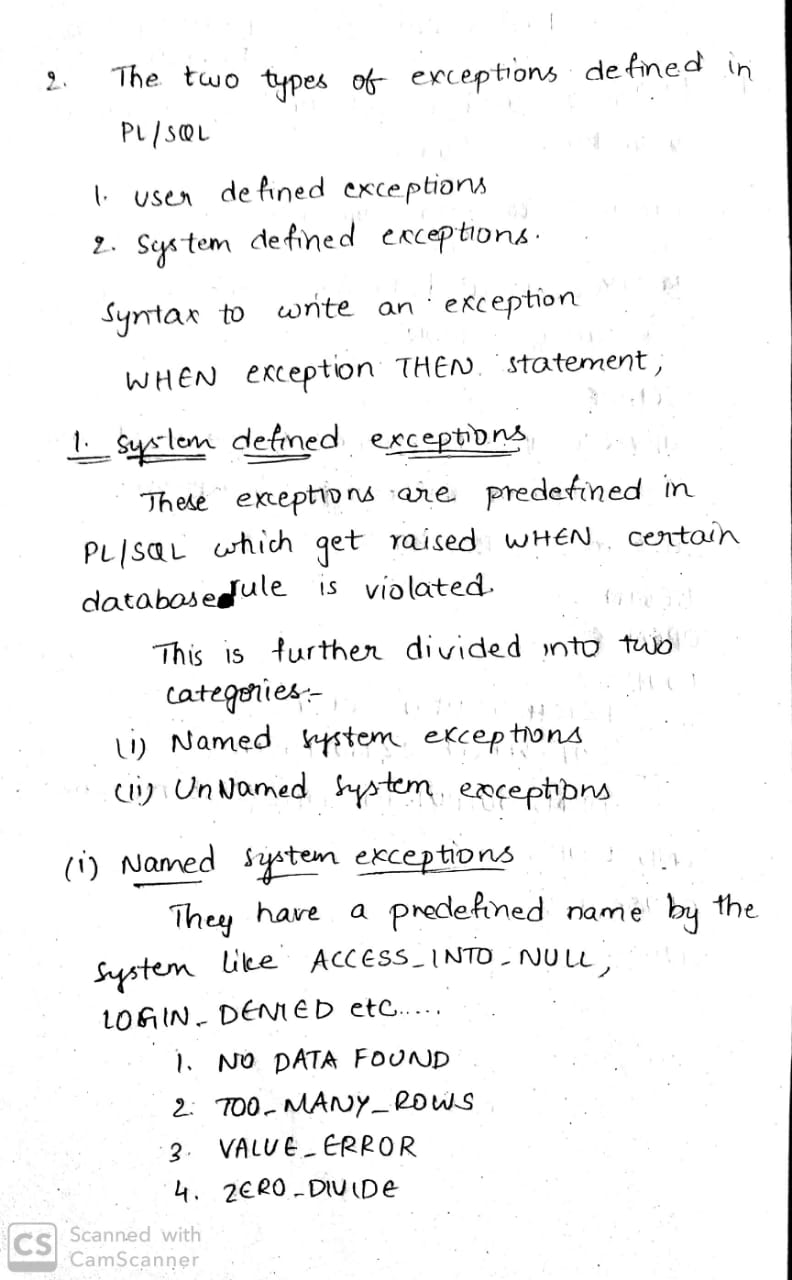 2. The two types of exceptions defined in
PL/SQL
1. user defined exceptions
2. System defined exceptions.
Syntax to write an exception
WHEN exception THEN statement;
1. System defined exceptions
These exceptions are predefined in
PL/SQL which get raised WHEN certain
database rule is violated.
This is further divided into two
categories:-
(i) Named system exceptions
(ii) UnNamed system exceptions
(i) Named system exceptions
They have a predefined name by the
system like ACCESS_INTO_NULL,
LOGIN_DENIED etc.....
1. NO DATA FOUND
2. TOO_MANY_ROWS
3. VALUE_ERROR
4. ZERO_DIVIDE
CS Scanned with
CamScanner